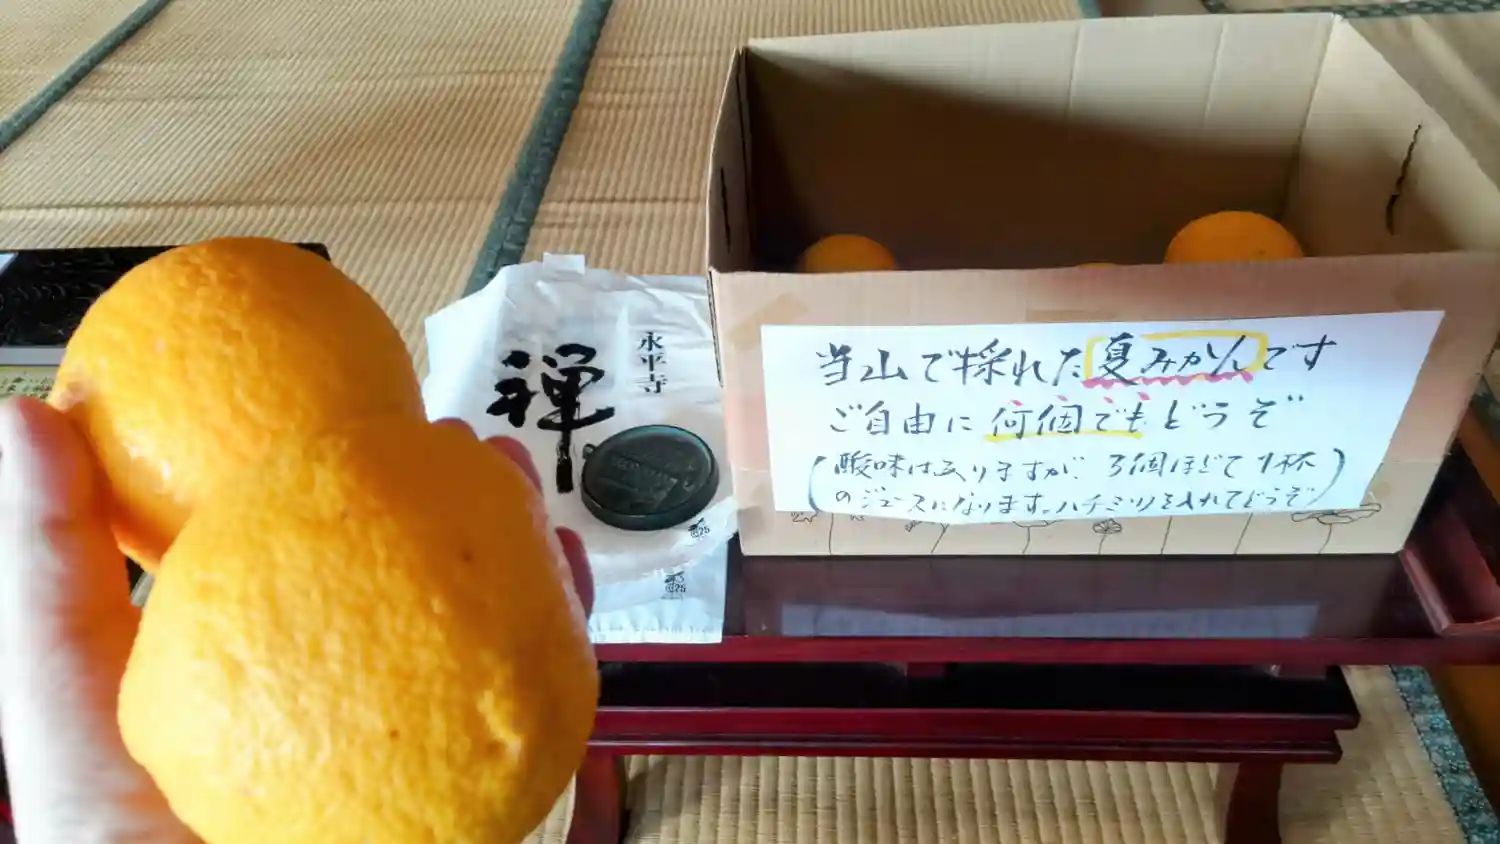 永平寺
禅
@25
@25
当山で採れた夏みかんです
ご自由に何個でもどうぞ
(酸味はありますが、3個ほどで1杯
のジュースになります。ハチミツを入れてどうぞ)